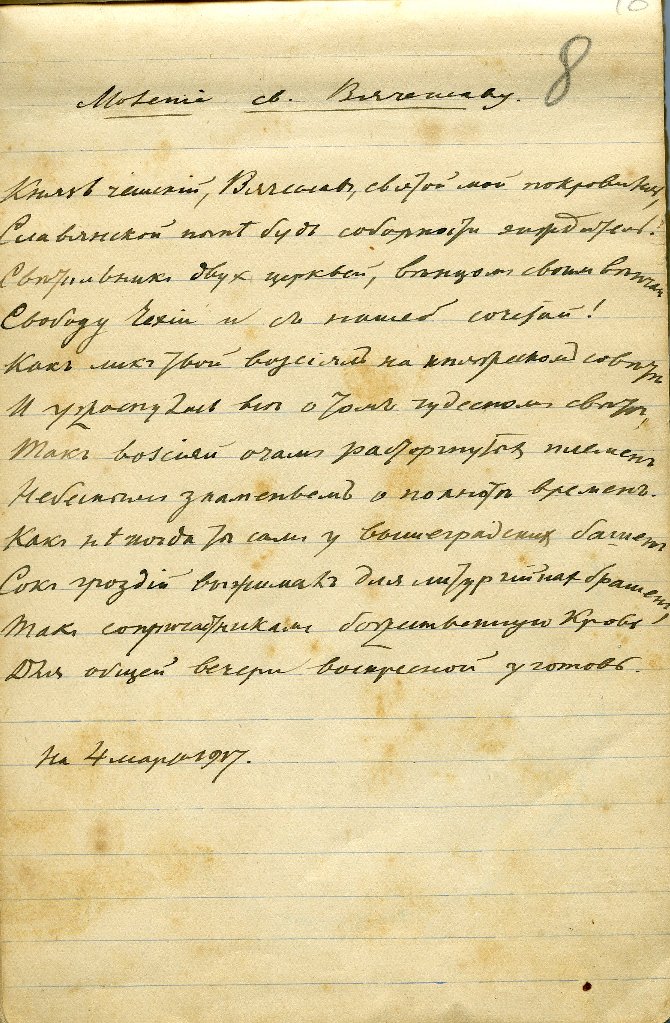 8
Моленіе св. Вячеславу.
Князь чешскій, Вячеславъ, святой мой покровитель,
Славянской нынѣ будь соборности зиждитель!
Свѣтильникъ двух церквей, вѣнцомъ своим вѣнчай
Свободу Чехіи и съ нашею сочетай!
Какъ ликъ твой возсіялъ на княжескомъ совѣтѣ
И ужаснулись всѣ о томъ чудесномъ свѣтѣ,
Такъ возсіяй очамъ расторгнутых племенъ
Небеснымъ знаменьемъ о полнотѣ временъ.
Какъ нѣкогда ты самъ у вышеградских башенъ
Сокъ гроздій выжималъ для литургійных брашенъ,
Такъ сопричастникамъ божественную Кровь
Для общей вечери воскресной уготовь.
На 4 марта 1917.